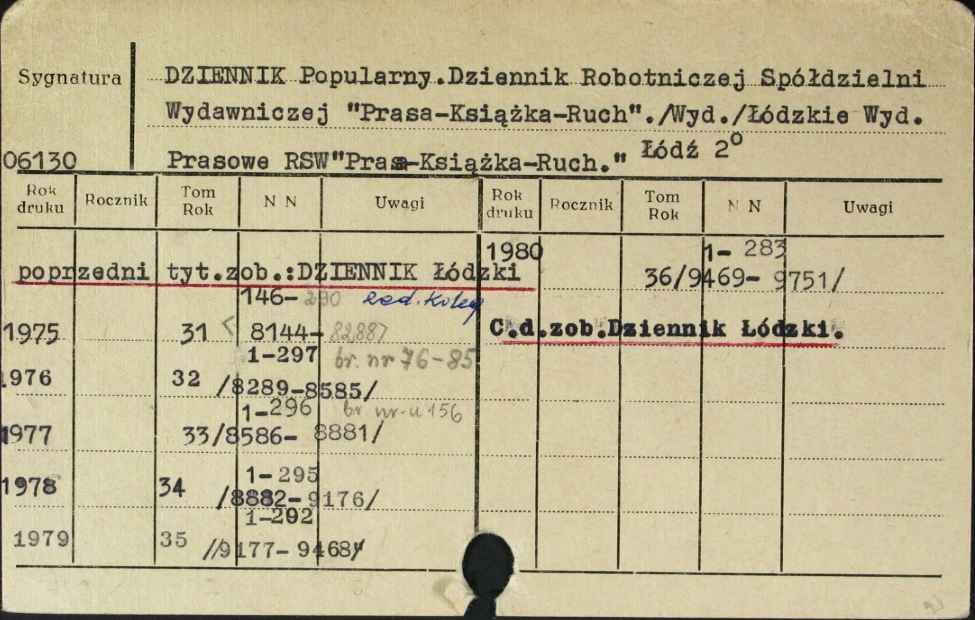 Sygnatura
DZIENNIK Popularny.Dziennik Robotniczej Spółdzielni
Wydawniczej "Prasa-Książka-Ruch"./Wyd./Łódzkie Wyd.
06130
Prasowe RSW"Prasa-Książka-Ruch." Łódź 2o
Rok druku Rocznik Tom Rok N N Uwagi Rok druku Rocznik Tom Rok N N Uwagi
poprzedni tyt.zob.:DZIENNIK Łódzki
146-290 red. Kolej
1975 31 8144-
1-297 br. nr 76-85
1976 32 /8289-8585/
1-296 br nr-u 156
1977 33/8586- 8881/
1-295
1978 34 /8882-9176/
1-292
1979 35 //9177- 9468/
1980 1- 283
36/9469- 9751/
C.d.zob.Dziennik Łódzki.